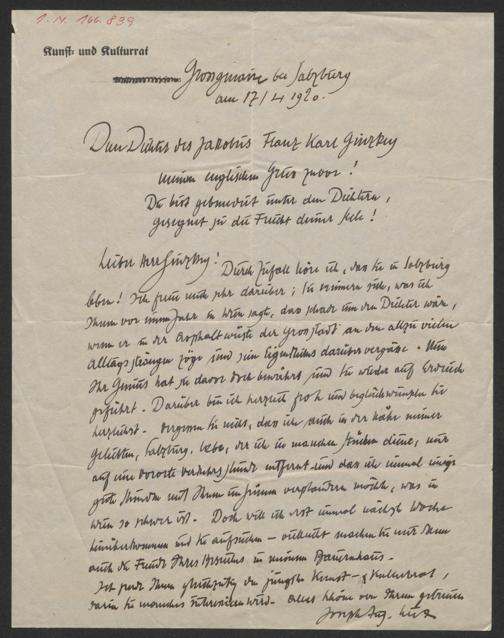 I. N. 166.839
Kunst- und Kulturrat
Grossgmain bei Salzburg
am 17/4 1920.
Dem Dichter des Jakobus Franz Karl Ginzkey
meinen englischen Gruss zuvor!
Du bist gebenedeit unter den Dichtern,
gesegnet sei die Frucht deiner Seele!
Lieber Herr Ginzkey! Durch Zufall höre ich, das Sie in Salzburg
leben! Ich freue mich sehr darüber; Sie erinnern sich, was ich
Ihnen vor einem Jahr in Wien sagte, das schade um den Dichter wäre,
wenn er in der Asphaltwüste der Grosstadt an den allzu vielen
Alltagssträngen zöge und sein Eigentliches darüber vergässe. Nun
Ihr Genius hat Sie davor doch bewahrt und Sie wieder auf Erdreich
geführt. Darüber bin ich herzlich froh und beglückwünsche Sie
herzlichst. Vergessen Sie nicht, das ich auch in der Nähe meiner
geliebten Salzburg lebe, der ich in manchen Stücken diene, nur
auf eine Vororte Verkehrs Stunde entfernt und das ich einmal einige
gute Stunden mit Ihnen im freien verplaudern möchte, was in
Wien so schwer ist. Doch will ich erst einmal nächste Woche
hinüberkommen und Sie aufsuchen – vielleicht machen Sie mir dann
auch die Freude Ihres Besuches in meinem Bauernhaus.
Ich sende Ihnen gleichzeitig den jüngsten Kunst- & Kulturrat,
darin Sie manches interessieren wird. Alles Schöne von Ihrem getreuen
Joseph Aug. Lux